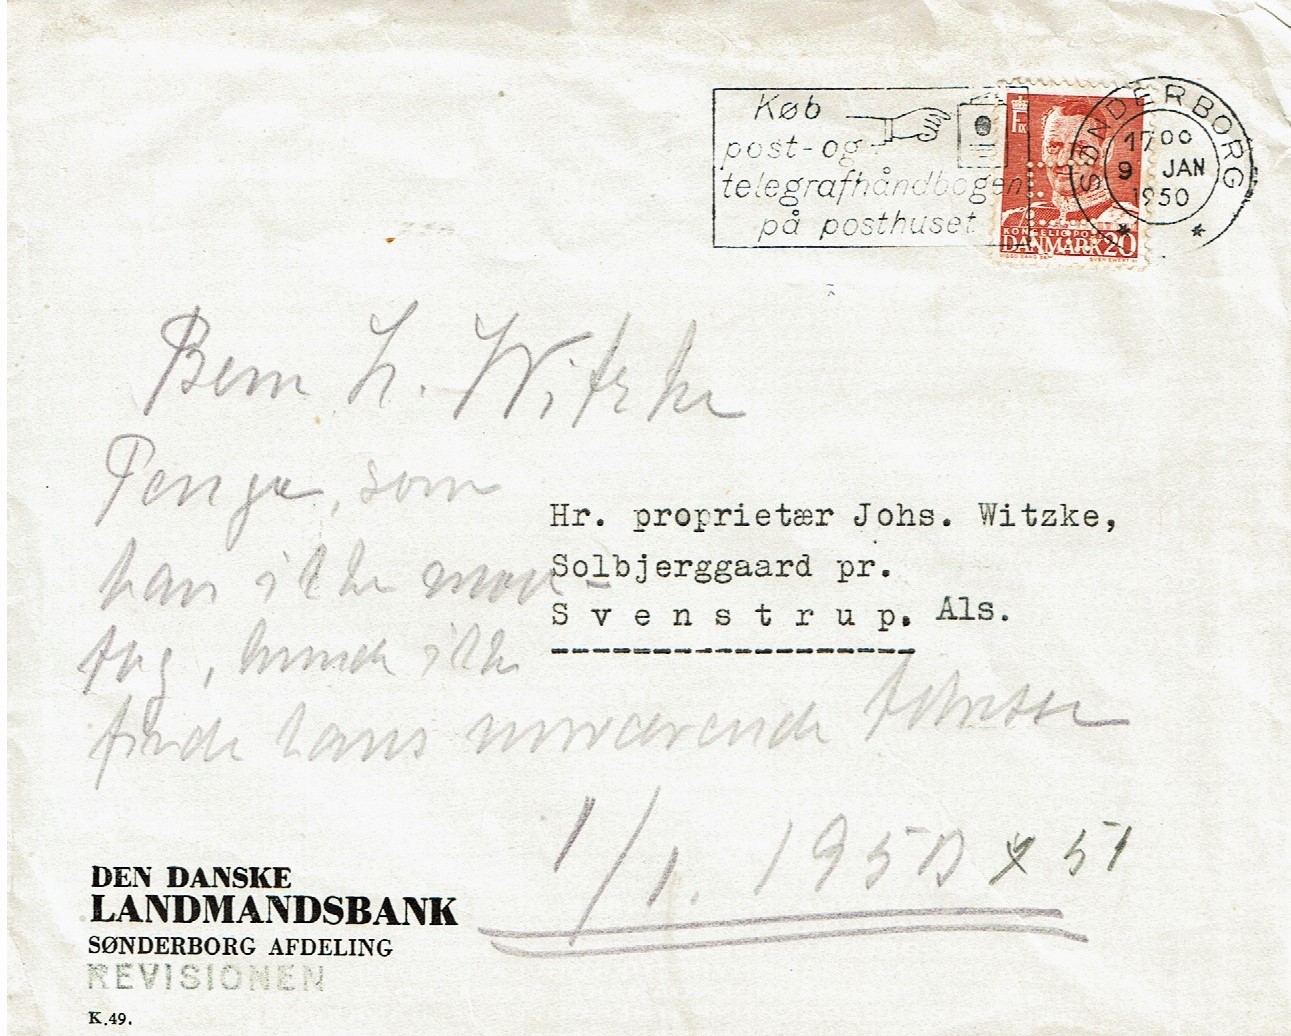 Køb
post- og
telegrafhåndbogen
på posthuset
SØNDERBORG
1700
9 JAN
1950
KONGELIG POST
DANMARK 20
Bem H. Witzke
Penge, som
han ikke mod-
tog, kunde ikke
finde hans nuværende Adresse
1/1. 1950 & 51
Hr. proprietær Johs. Witzke,
Solbjerggaard pr.
Svenstrup. Als.
DEN DANSKE
LANDMANDSBANK
SØNDERBORG AFDELING
REVISIONEN
K.49.